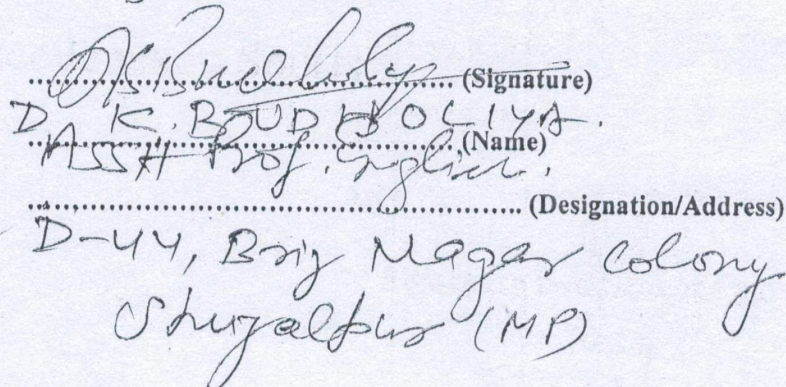 (Signature)
D. K. BOUDHOLIYA.
(Name)
Asstt Prof. English.
(Designation/Address)
D-44, Brij Nagar Colony
Shujalpur (MP)